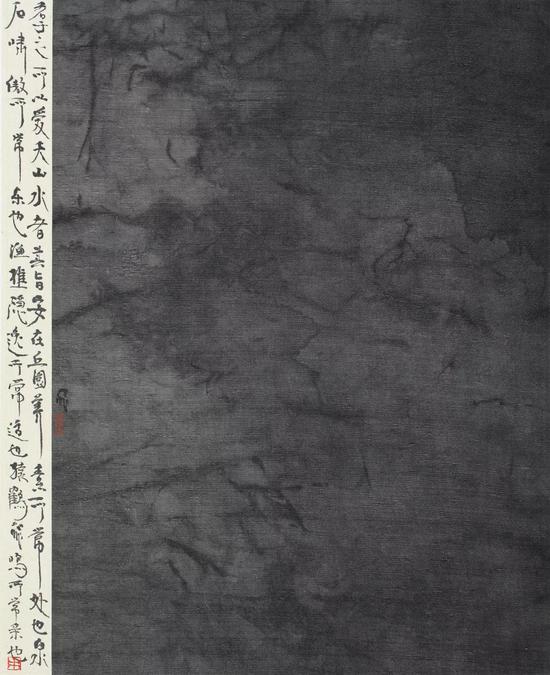 君子之所以愛夫山水者其旨安在丘園養素所常处也泉
石嘯傲所常乐也渔樵隱逸所常适也猿鶴飛鳴所常亲也